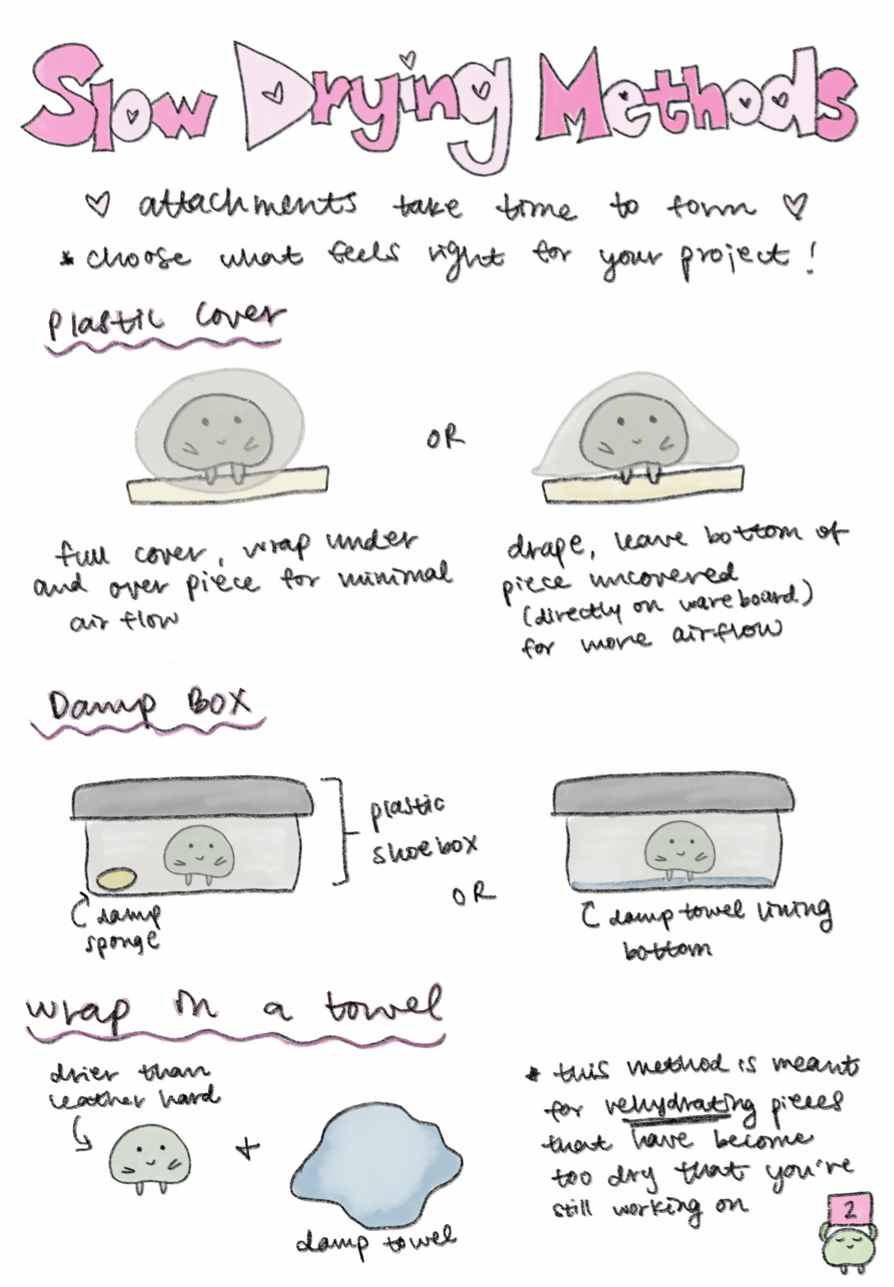 Slow Drying Methods
♡ attachments take time to form ♡
* choose what feels right for your project!
Plastic Cover
OR
full cover, wrap under
and over piece for minimal
air flow
drape, leave bottom of
piece uncovered
(directly on wareboard)
for more airflow
Damp Box
plastic
shoebox
damp
sponge
OR
damp towel lining
bottom
wrap in a towel
drier than
leather hard
+
damp towel
* this method is meant
for rehydrating pieces
that have become
too dry that you're
still working on
2